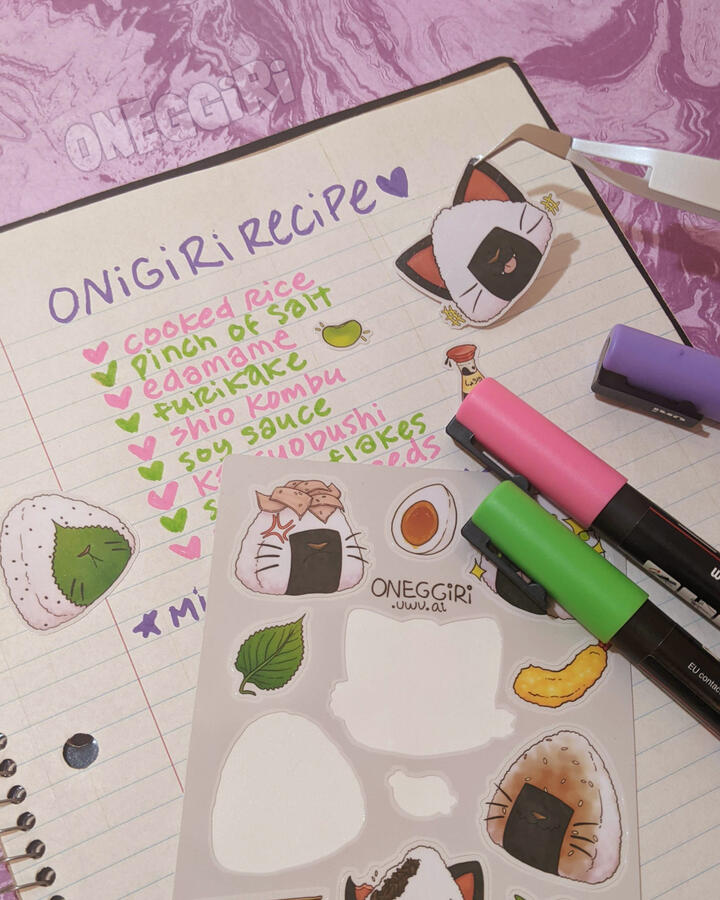 ONEGGiRi
ONiGiRi RECiPE
cooked rice
pinch of salt
edamame
furikake
shio kombu
soy sauce
flakes
ONEGGiRi
.uwu.ai
EU